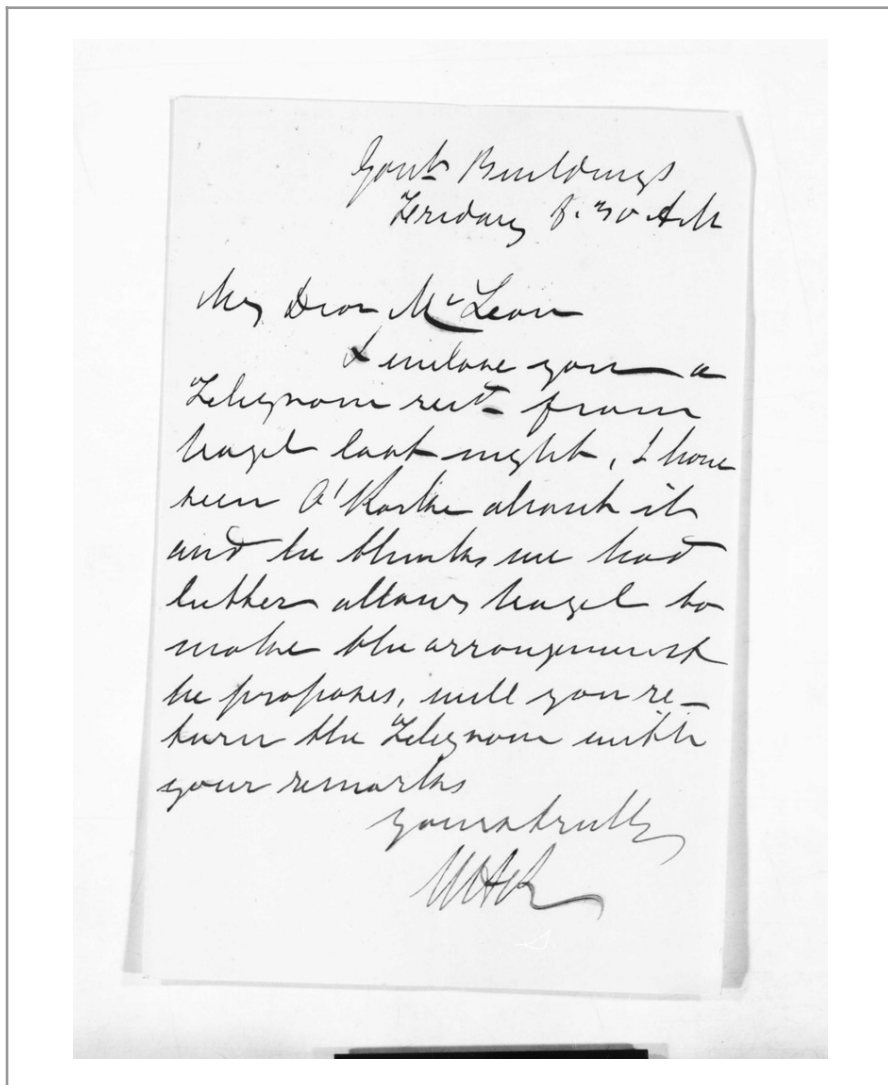 Govt Buildings
Friday 8.30 AM
My Dear McLean
I inclose you a
Telegram recd from
Vogel last night, I have
seen O'Rorke about it
and he thinks we had
better allow Vogel to
make the arrangement
he proposes, will you re-
turn the Telegram with
your remarks
yours truly
WHR